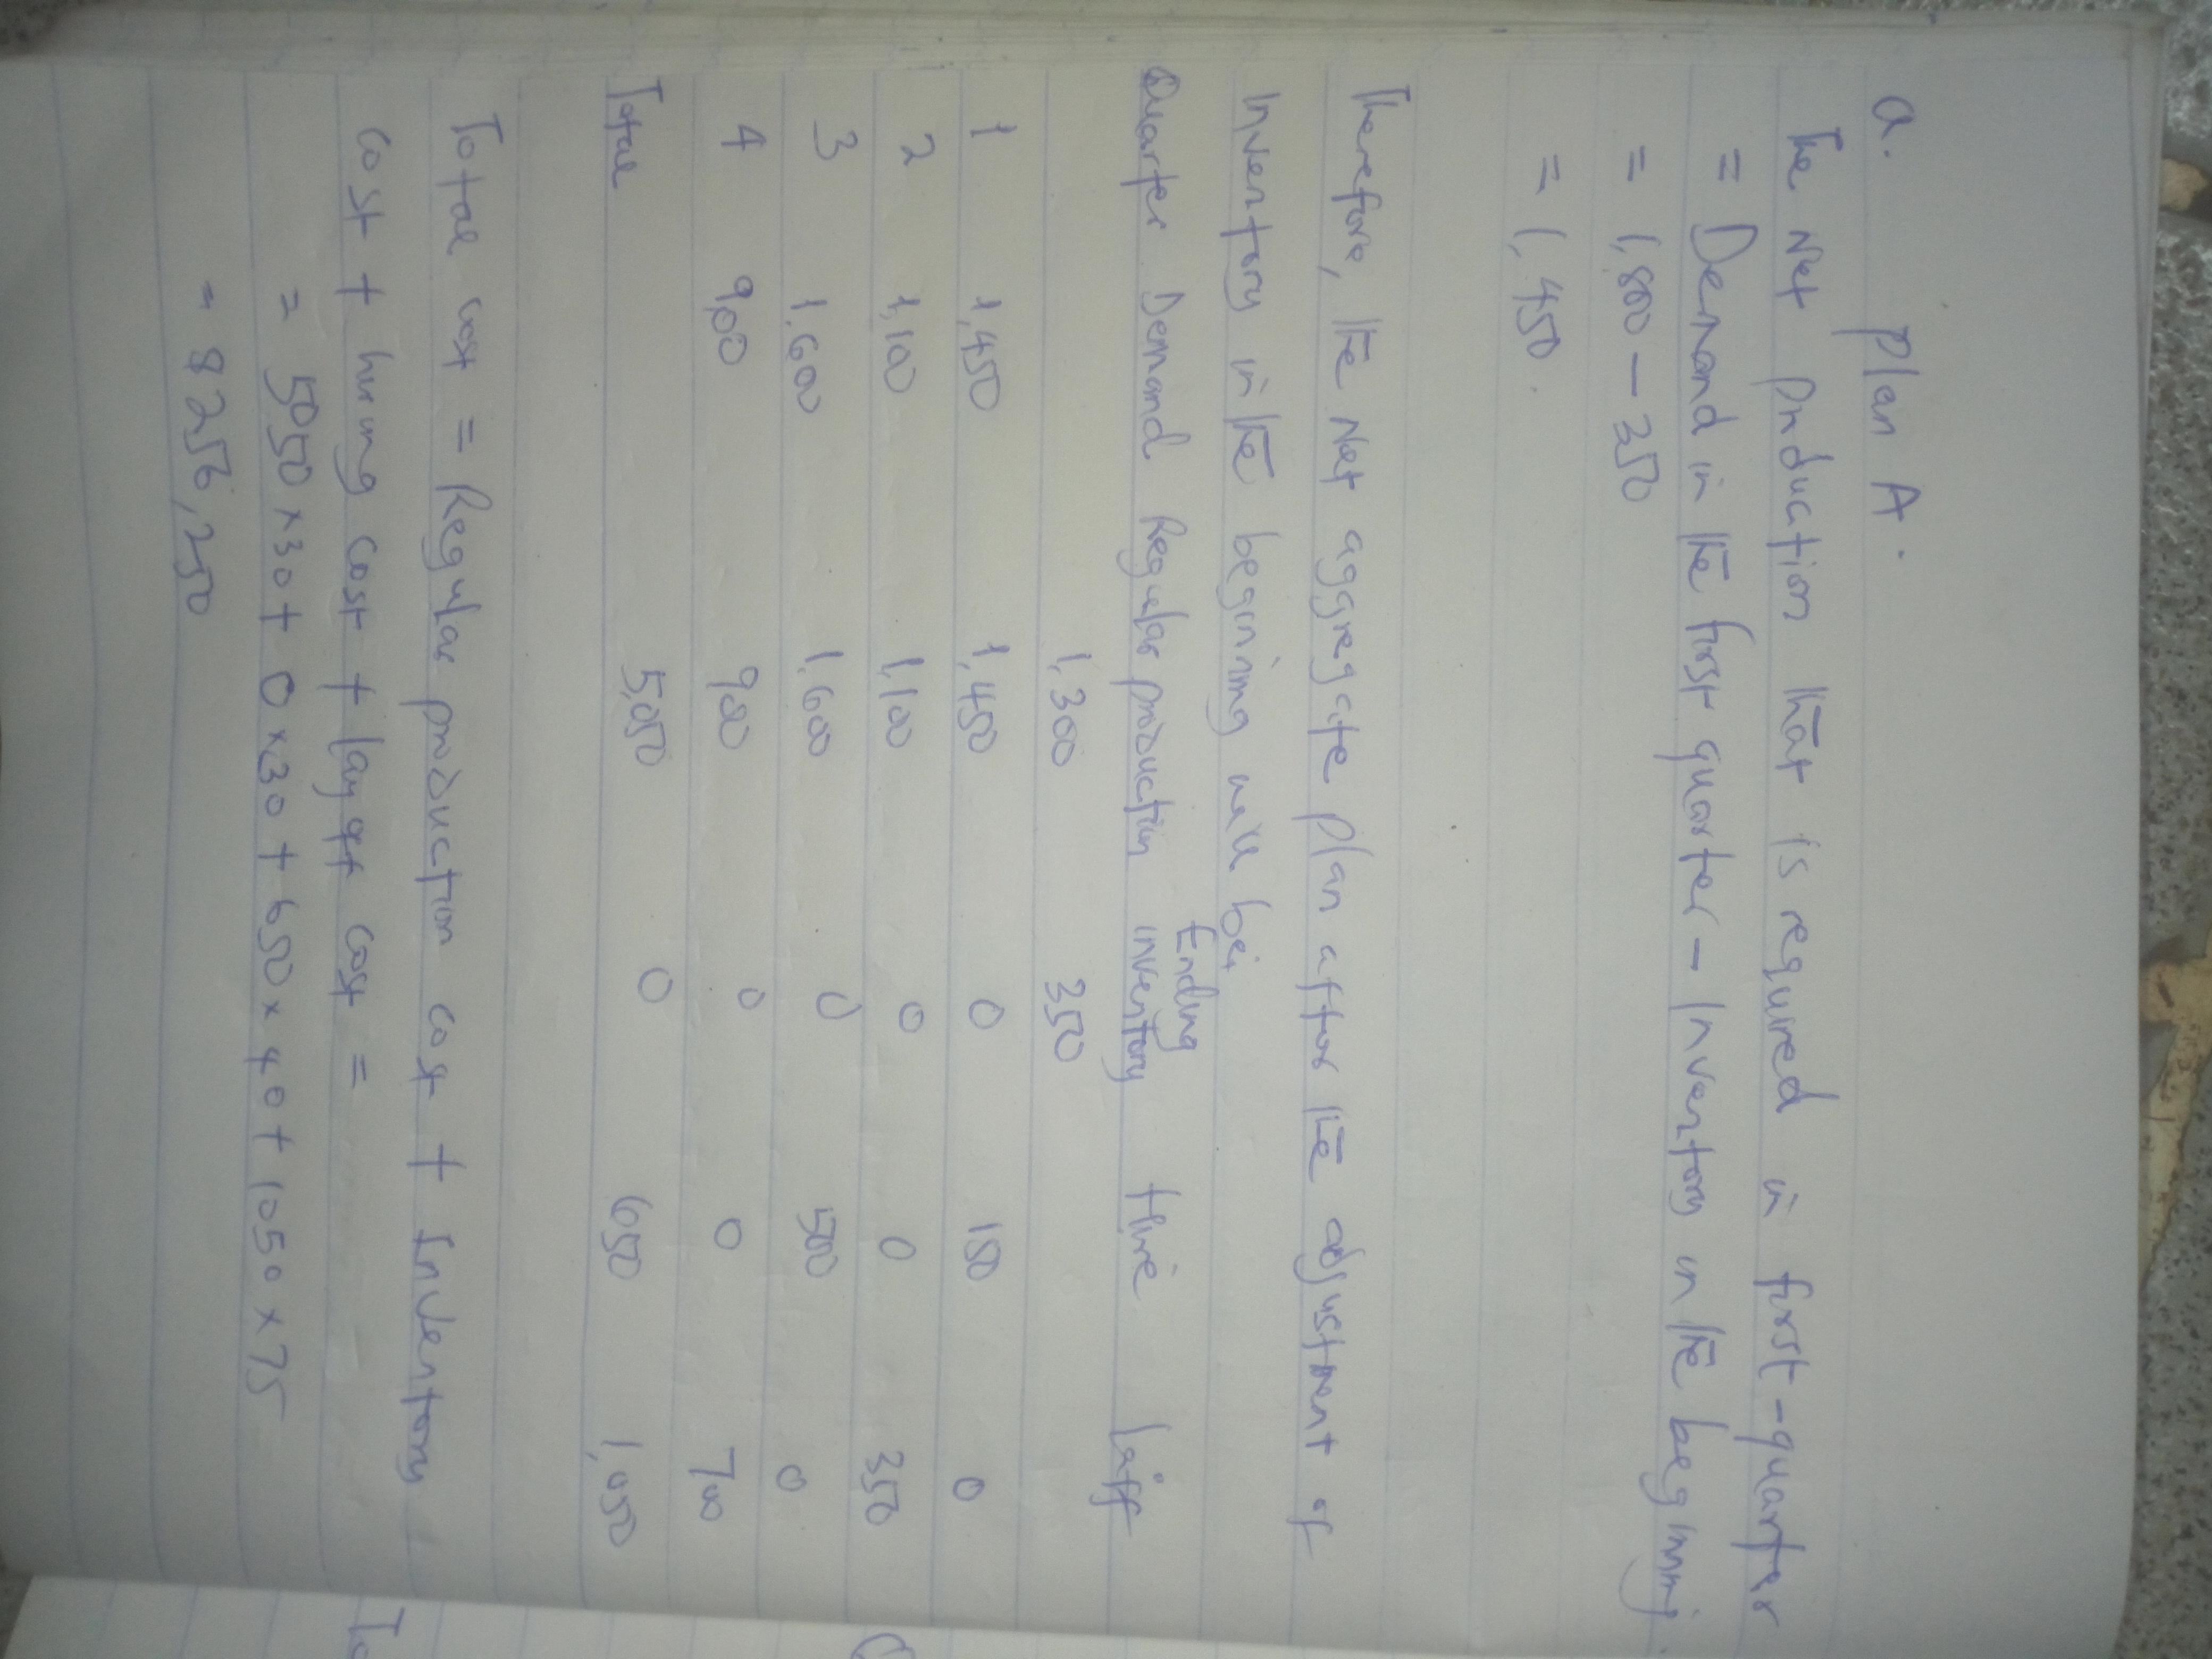 a. Plan A.
The Net production that is required in first-quarter
= Demand in the first quarter - Inventory in the beginning.
= 1,800 - 350
= 1,450.
Therefore, the Net aggregate plan after the adjustment of
Inventory in the beginning will be;
Quarter Demand Regular production Ending inventory Hire Laiff
1,300 350
1 1,450 1,450 0 150 0
2 1,100 1,100 0 0 350
3 1,600 1,600 0 500 0
4 9,00 900 0 0 700
Total 5,050 0 650 1,050
Total cost = Regular production cost + Inventory
cost + hiring cost + layoff cost =
= 5050 x 30 + 0 x 30 + 650 x 40 + 1050 x 75
= 8256,250